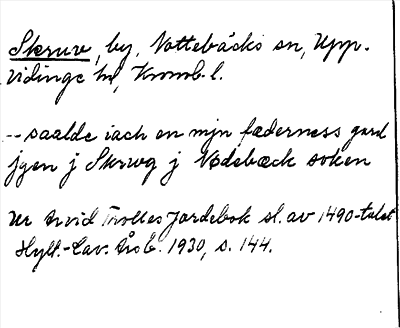 Skruv, by, Nottebäcks sn, Upp-
vidinge hd, Kronob. l.
-- saalde iach en mjn fæderness gard
jgen j Skrwg j Nødebæck soken
Ur Arvid Trolles Jordebok sl. av 1490-talet
Hylt.-Cav. Årsb. 1930, s. 144.